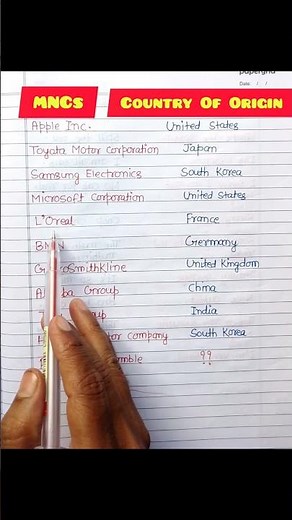 papergrid
Date : / /
MNCs Country Of Origin
Apple Inc. United States
Toyata Motor Corporation Japan
Samsung Electronics South Korea
Microsoft Corporation United States
L'Oreal France
BMW Germany
SmithKline United Kingdom
Group China
India
Company South Korea
??